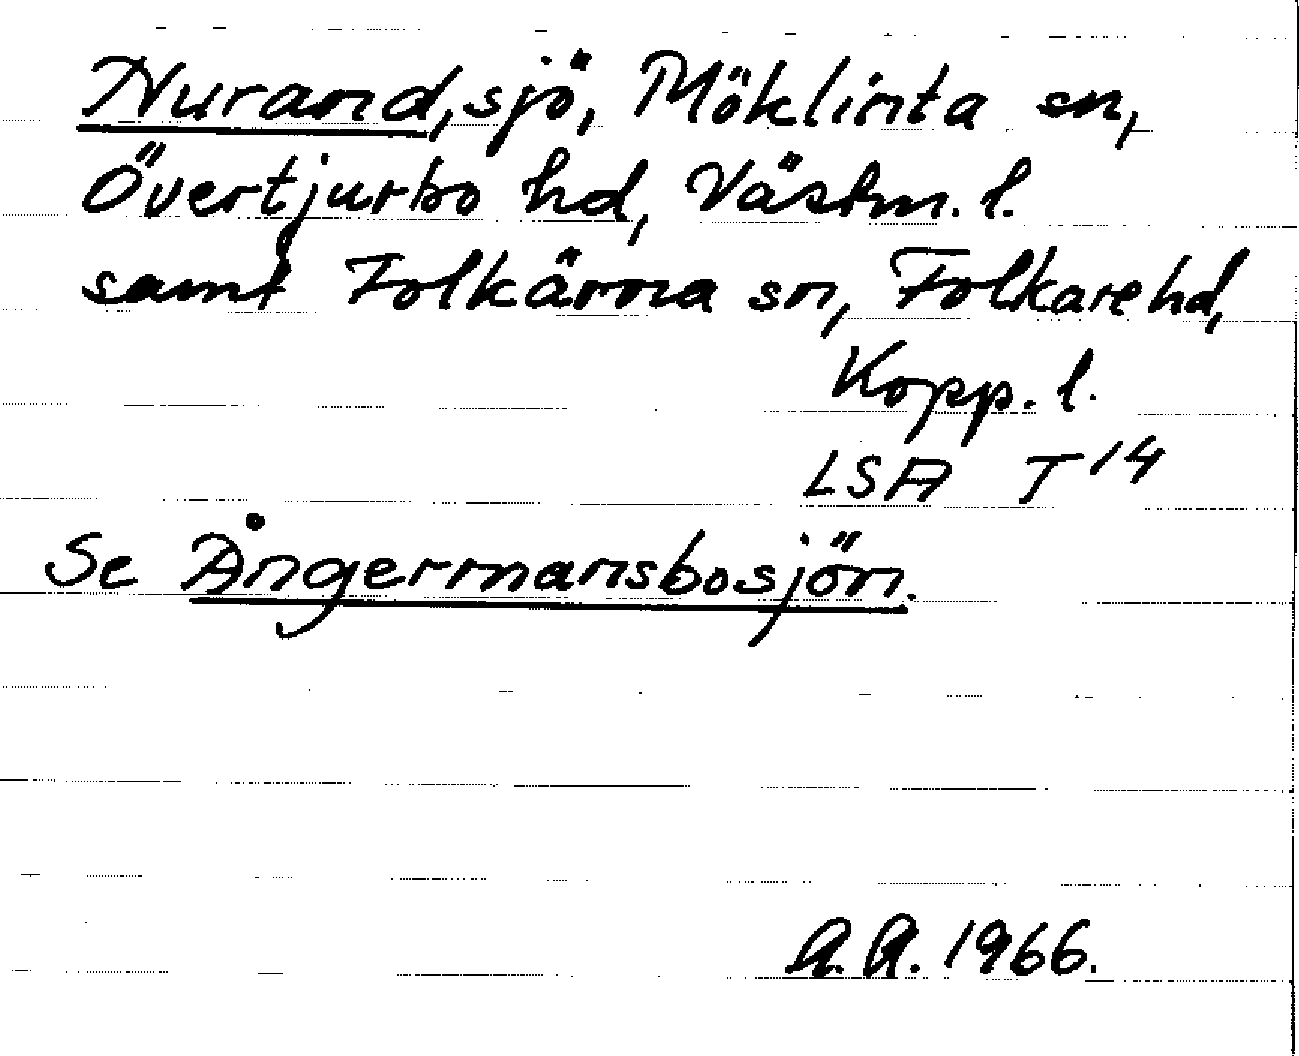 Nurand, sjö, Möklinta sn,
Övertjurbo hd, Västm. l.
samt Folkärna sn, Folkare hd,
Kopp. l.
LSA T 14
Se Ångermansbosjön.
A.A. 1966.